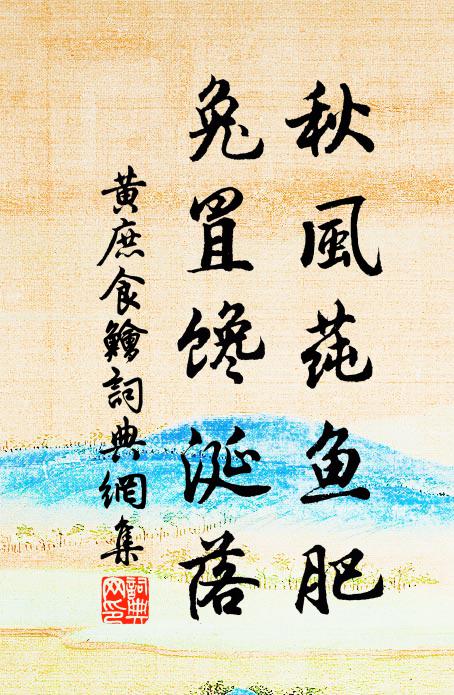 秋風莼鱼肥
兔罝馋涎落
黄庶食鱠詞典網集